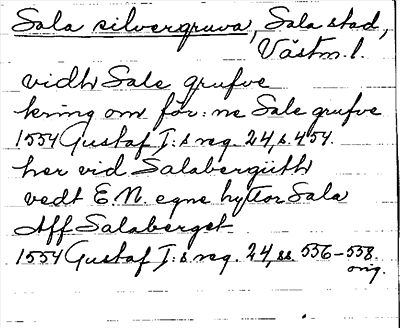 Sala silvergruva, Sala stad,
Västm. l.
vidh Sale grufve
kring om för:ne Sale grufve
1554 Gustaf I:s reg. 24, s. 454.
her vid Salabergüth
vedt E.N. egne hyttor Sala
Aff Salaberget
1554 Gustaf I:s reg. 24, ss. 556–558.
orig.